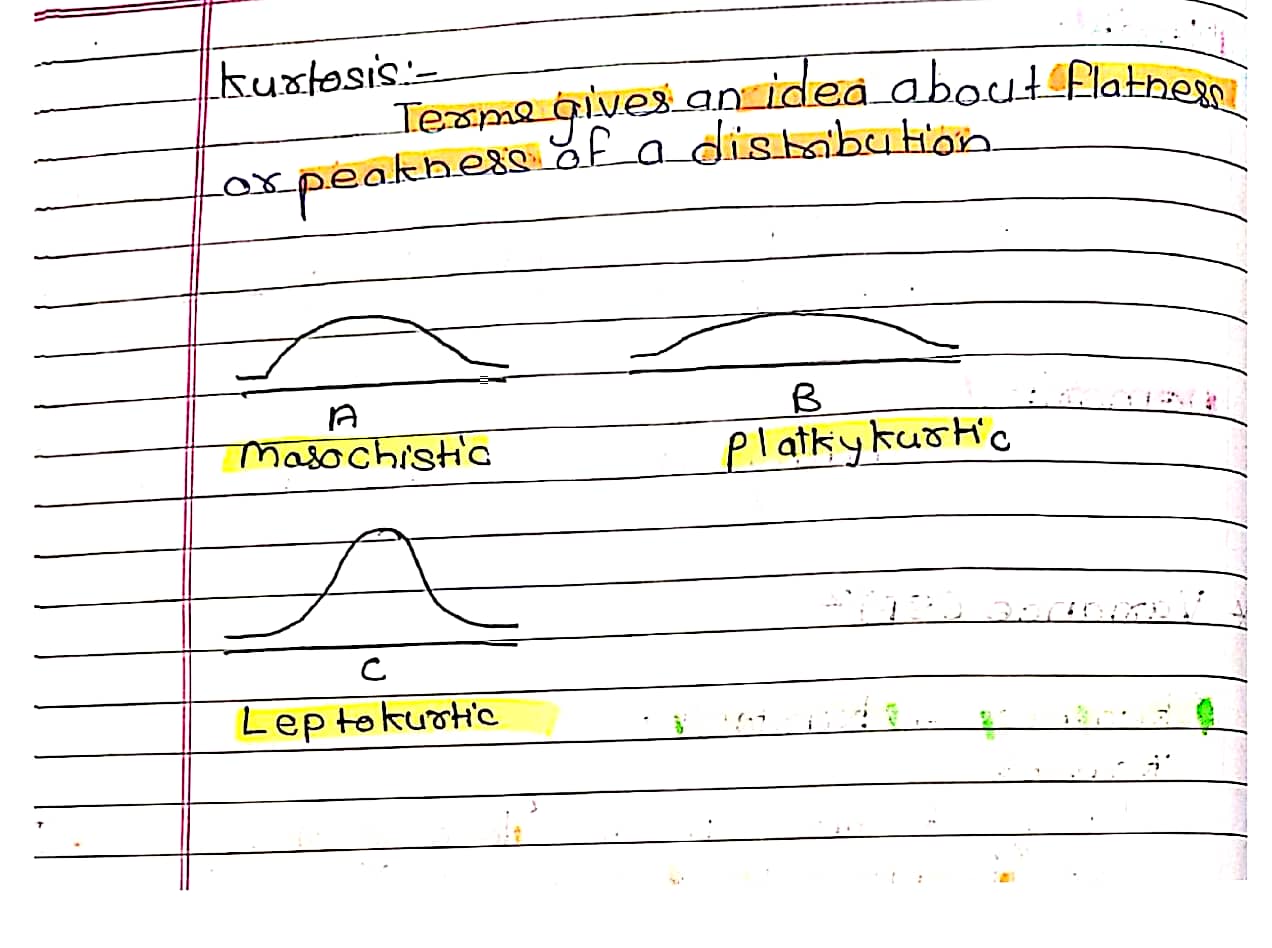 Kurtosis:-
Terme gives an idea about flatness
or peakness of a distribution
A
B
Masochistic
Platkykurtic
C
Leptokurtic